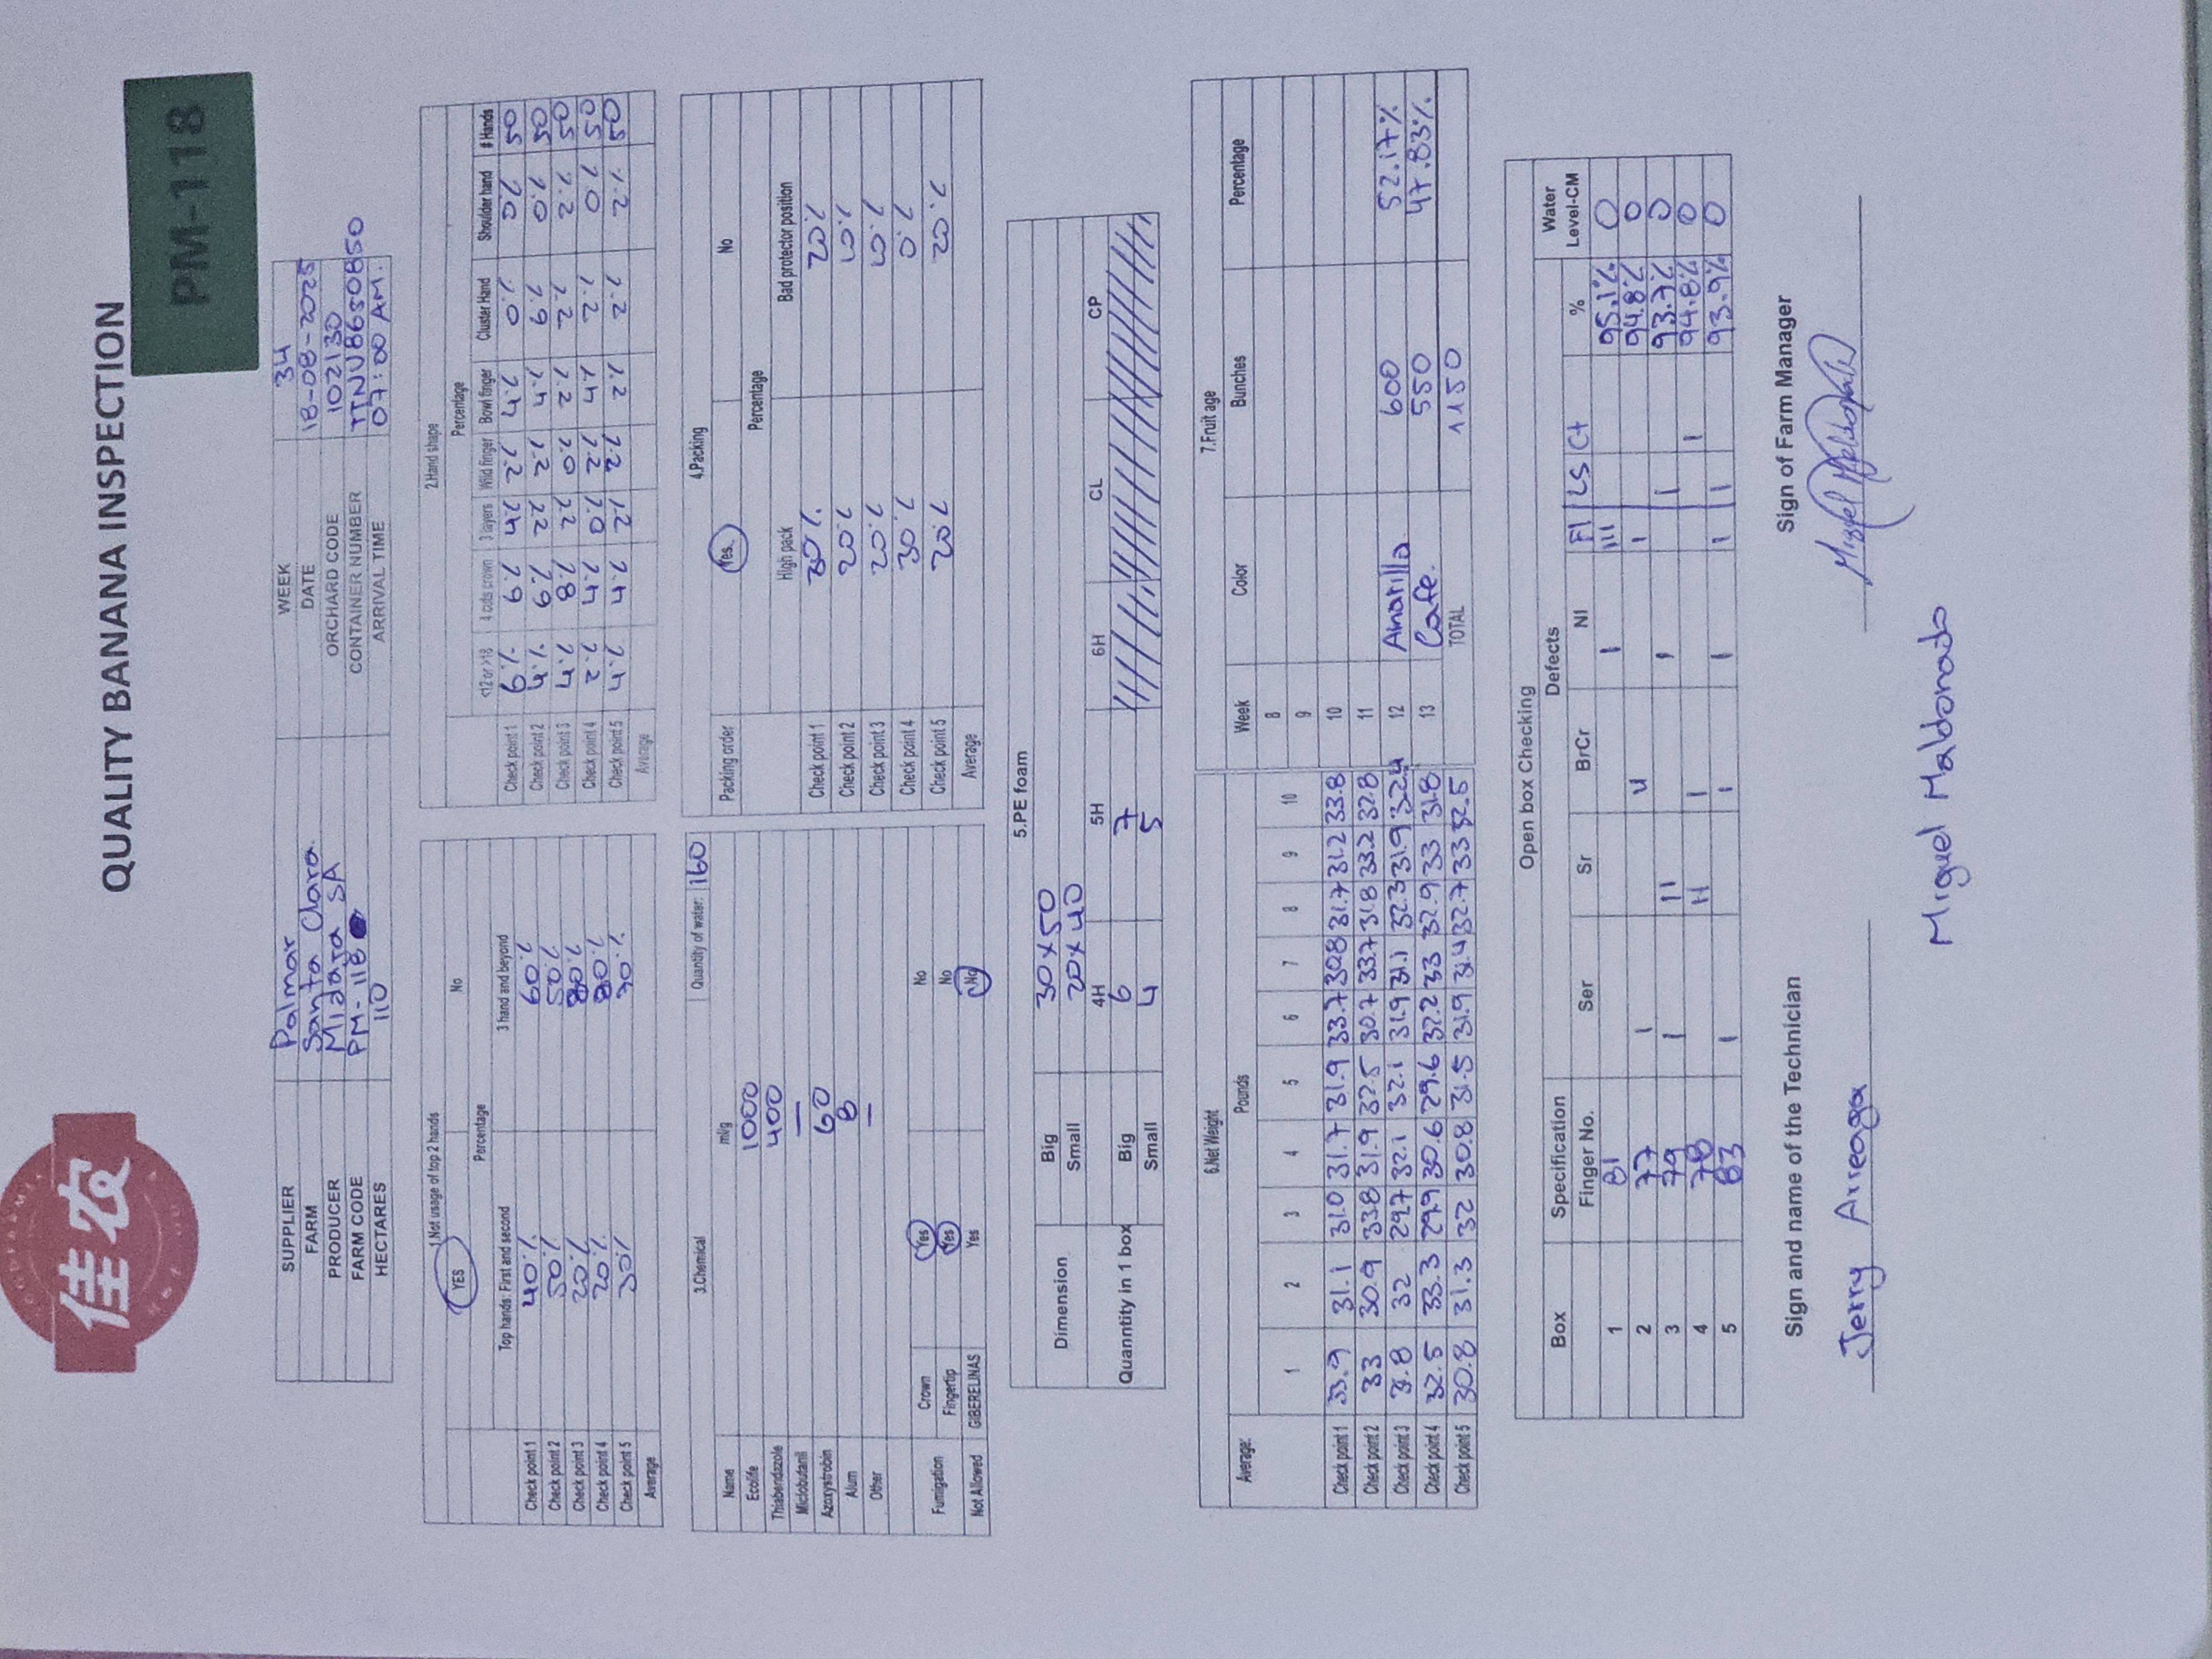 GOODFARMER
佳农
QUALITY BANANA INSPECTION
PM-118
SUPPLIER Palmar WEEK 34
FARM Santa Clara. DATE 18-08-2025
PRODUCER SA ORCHARD CODE 102130
FARM CODE PM-118 CONTAINER NUMBER TTNU8650850
HECTARES 110 ARRIVAL TIME 07:00 AM.
1.Not usage of top 2 hands
YES No
Percentage
Top hands: First and second 3 hand and beyond
Check point 1 40% 60%
Check point 2 50% 50%
Check point 3 20% 80%
Check point 4 20% 80%
Check point 5 30% 70%
Average
2.Hand shape
Percentage
<12 or >18 4 cuts crown 3 layers Wild finger Bowl finger Cluster Hand Shoulder hand # Hands
Check point 1 6% 6% 4% 2% 4% 0% 0% 50
Check point 2 4% 6% 2% 2% 4% 6% 0% 50
Check point 3 4% 8% 2% 0% 2% 2% 2% 50
Check point 4 2% 4% 0% 2% 4% 2% 0% 50
Check point 5 4% 4% 2% 2% 2% 2% 2% 50
Average
3.Chemical Quantity of water: 160
Name ml/g
Ecolife 1000
Thiabendazole 400
Miclobutanil —
Azoxystrobin 60
Alum 8
Other —
Fumigation Crown Yes No
Fingertip Yes No
Not Allowed GIBERELINAS Yes No
4.Packing
Packing order Yes. No
Percentage
High pack Bad protector position
Check point 1 30% 20%
Check point 2 20% 10%
Check point 3 20% 10%
Check point 4 30% 0%
Check point 5 20% 20%
Average
5.PE foam
Dimension Big 30x50
Small 20x40
4H 5H 6H CL CP
Quanntity in 1 box Big 6 7
Small 4 5
6.Net Weight
Average: Pounds
1 2 3 4 5 6 7 8 9 10
Check point 1 33.9 31.1 31.0 31.7 31.9 33.7 30.8 31.7 31.2 33.8
Check point 2 33 30.9 33.8 31.9 32.5 30.7 33.7 31.8 33.2 32.8
Check point 3 32 29.7 32.1 32.1 31.9 31.1 32.3 31.9 32.4
Check point 4 32.5 33.3 29.9 30.6 29.6 32.2 33 32.9 33 31.8
Check point 5 30.8 31.3 32 30.8 31.5 31.9 31.4 32.7 33 32.5
7.Fruit age
Week Color Bunches Percentage
8
9
10
11
12 Amarilla 600 52.17%
13 Cafe. 550 47.83%
TOTAL 1150
Open box Checking
Box Specification Defects Water Level-CM
Finger No. Ser Sr BrCr NI FI LS Ct %
1 81 I III 95.1% 0
2 77 I II I 94.8% 0
3 79 I II I I 93.7% 0
4 78 II I I 94.8% 0
5 83 I I I I I 93.9% 0
Sign and name of the Technician Sign of Farm Manager
Jerry Arreaga Miguel Maldonado
Miguel Maldonado